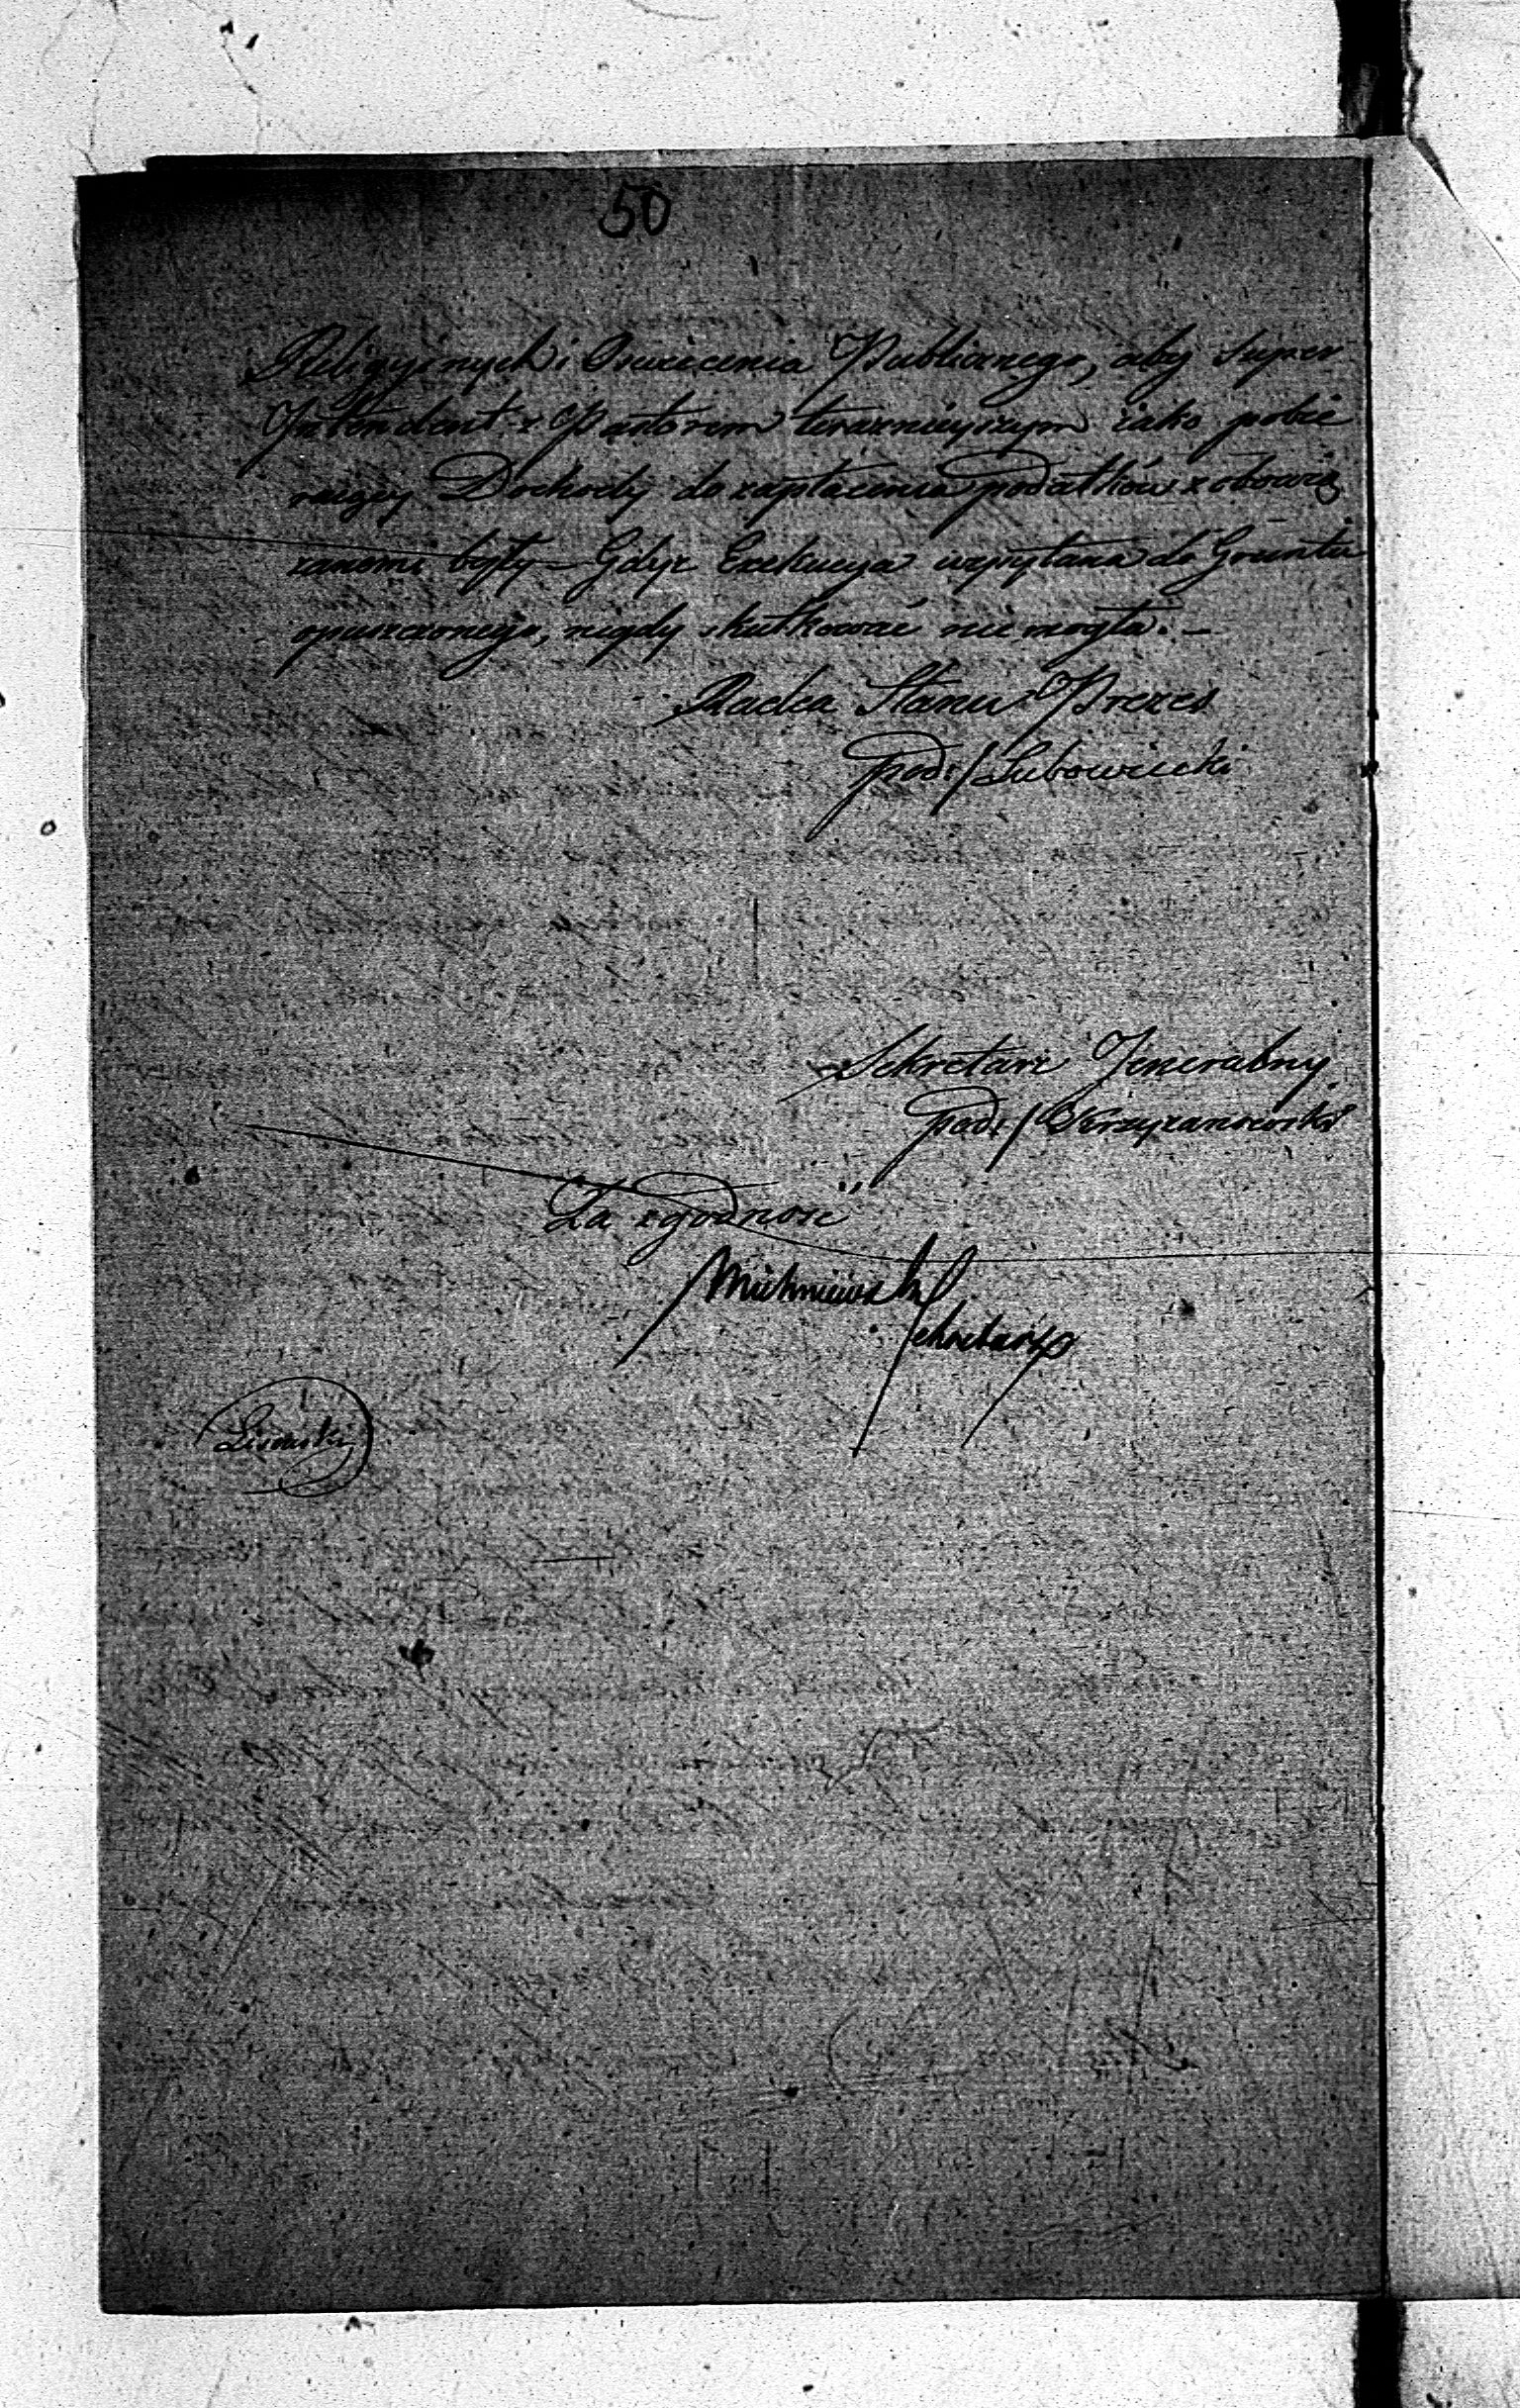 50
Religyinych i Oswiecenia Publicznego, aby Super
Intendent z Pastorem teraznieyszym iako pobie
raiący Dochody do zapłacenia podatków z obowią
zanemi były – Gdyż Exekucya wysyłana do Gruntu
opuszczonego, nigdy skutkować nie mogła. –
Radca Stanu Prezes
podp/ Lubowiecki
Sekretarz Jeneralny
Podp/ Krzyżanowski
Za zgodność
Sekretarz
Lisowski